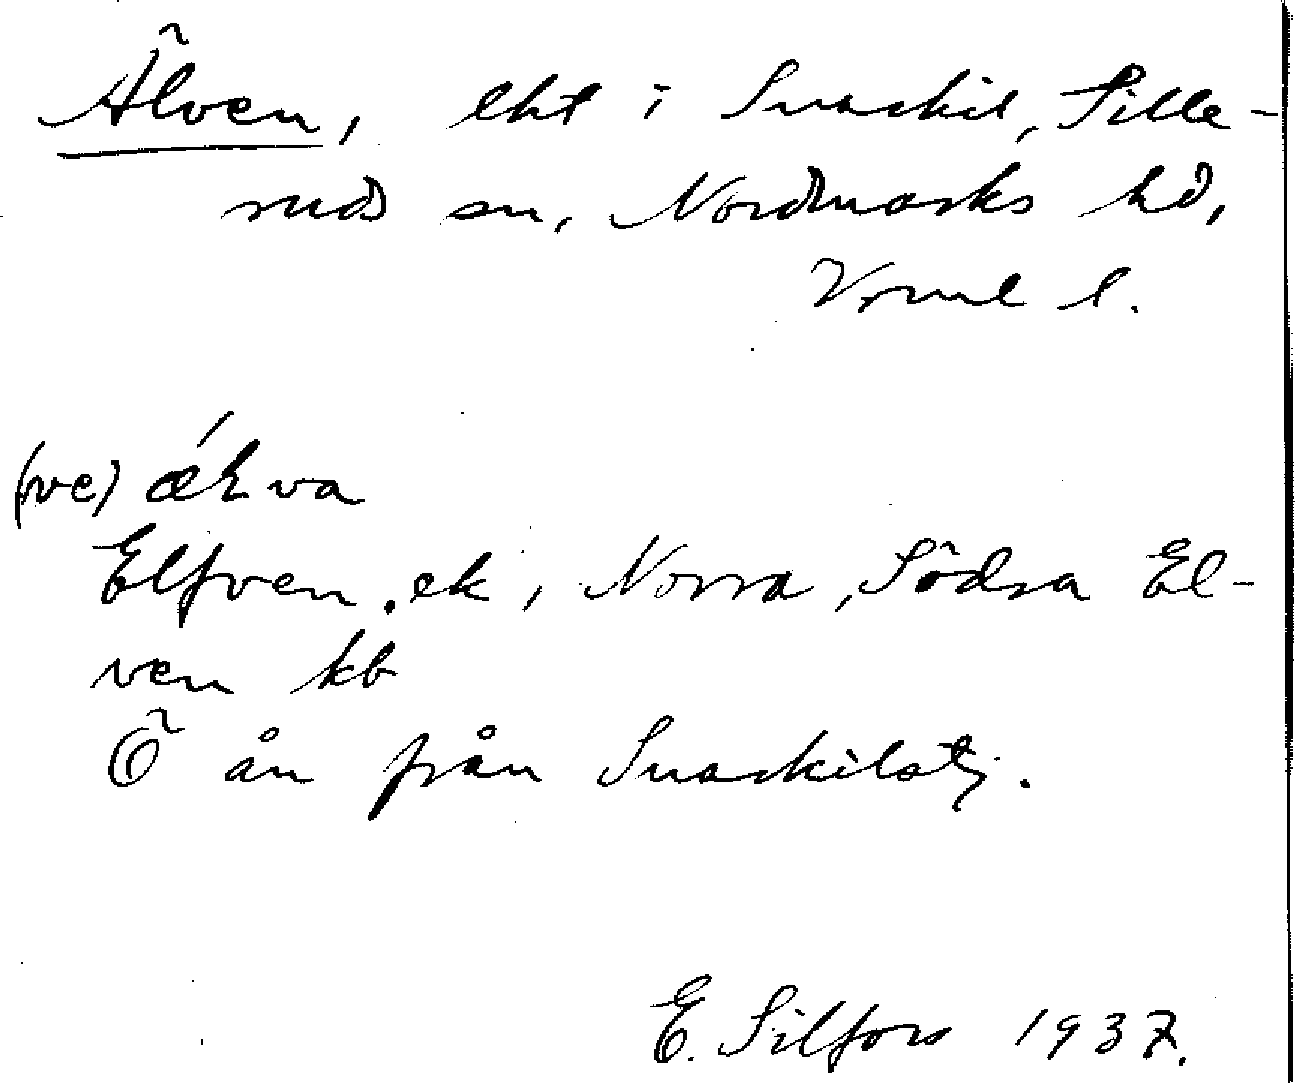 Älven, lht i Snarkil, Sille-
ruds sn, Nordmarks hd,
Vrml l.
(ve) ǽLva
Elfven ek, Norra, Södra El-
ven kb
Ö ån från Snarkilstj.
E. Silfors 1937.